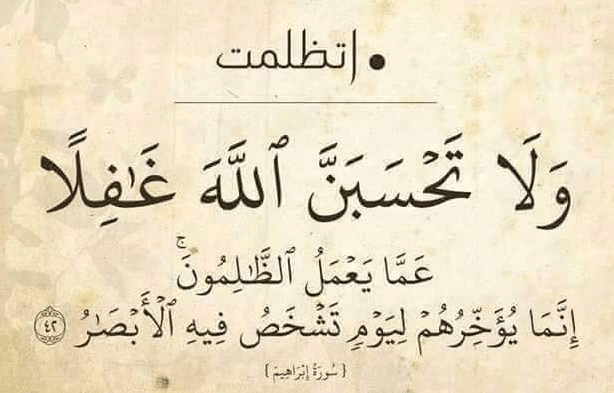 • اتظلمت
وَلَا تَحْسَبَنَّ ٱللَّهَ غَٰفِلًا
عَمَّا يَعْمَلُ ٱلظَّٰلِمُونَ ۚ
إِنَّمَا يُؤَخِّرُهُمْ لِيَوْمٍ تَشْخَصُ فِيهِ ٱلْأَبْصَٰرُ ٤٢
{ سُورَةُ إِبْرَاهِيمَ }